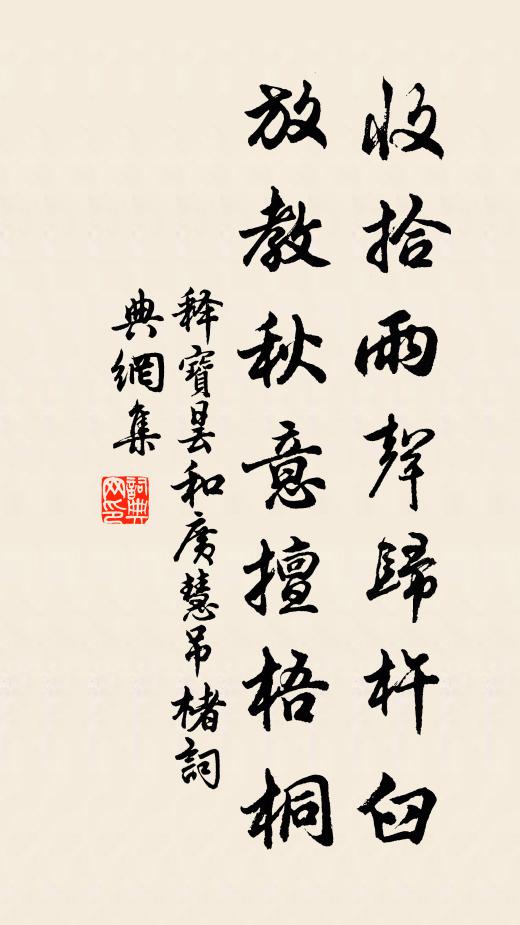 收拾雨聲歸杵臼
放教秋意擅梧桐
释寶昙和广慧吊楮詞
典網集
詞典网印